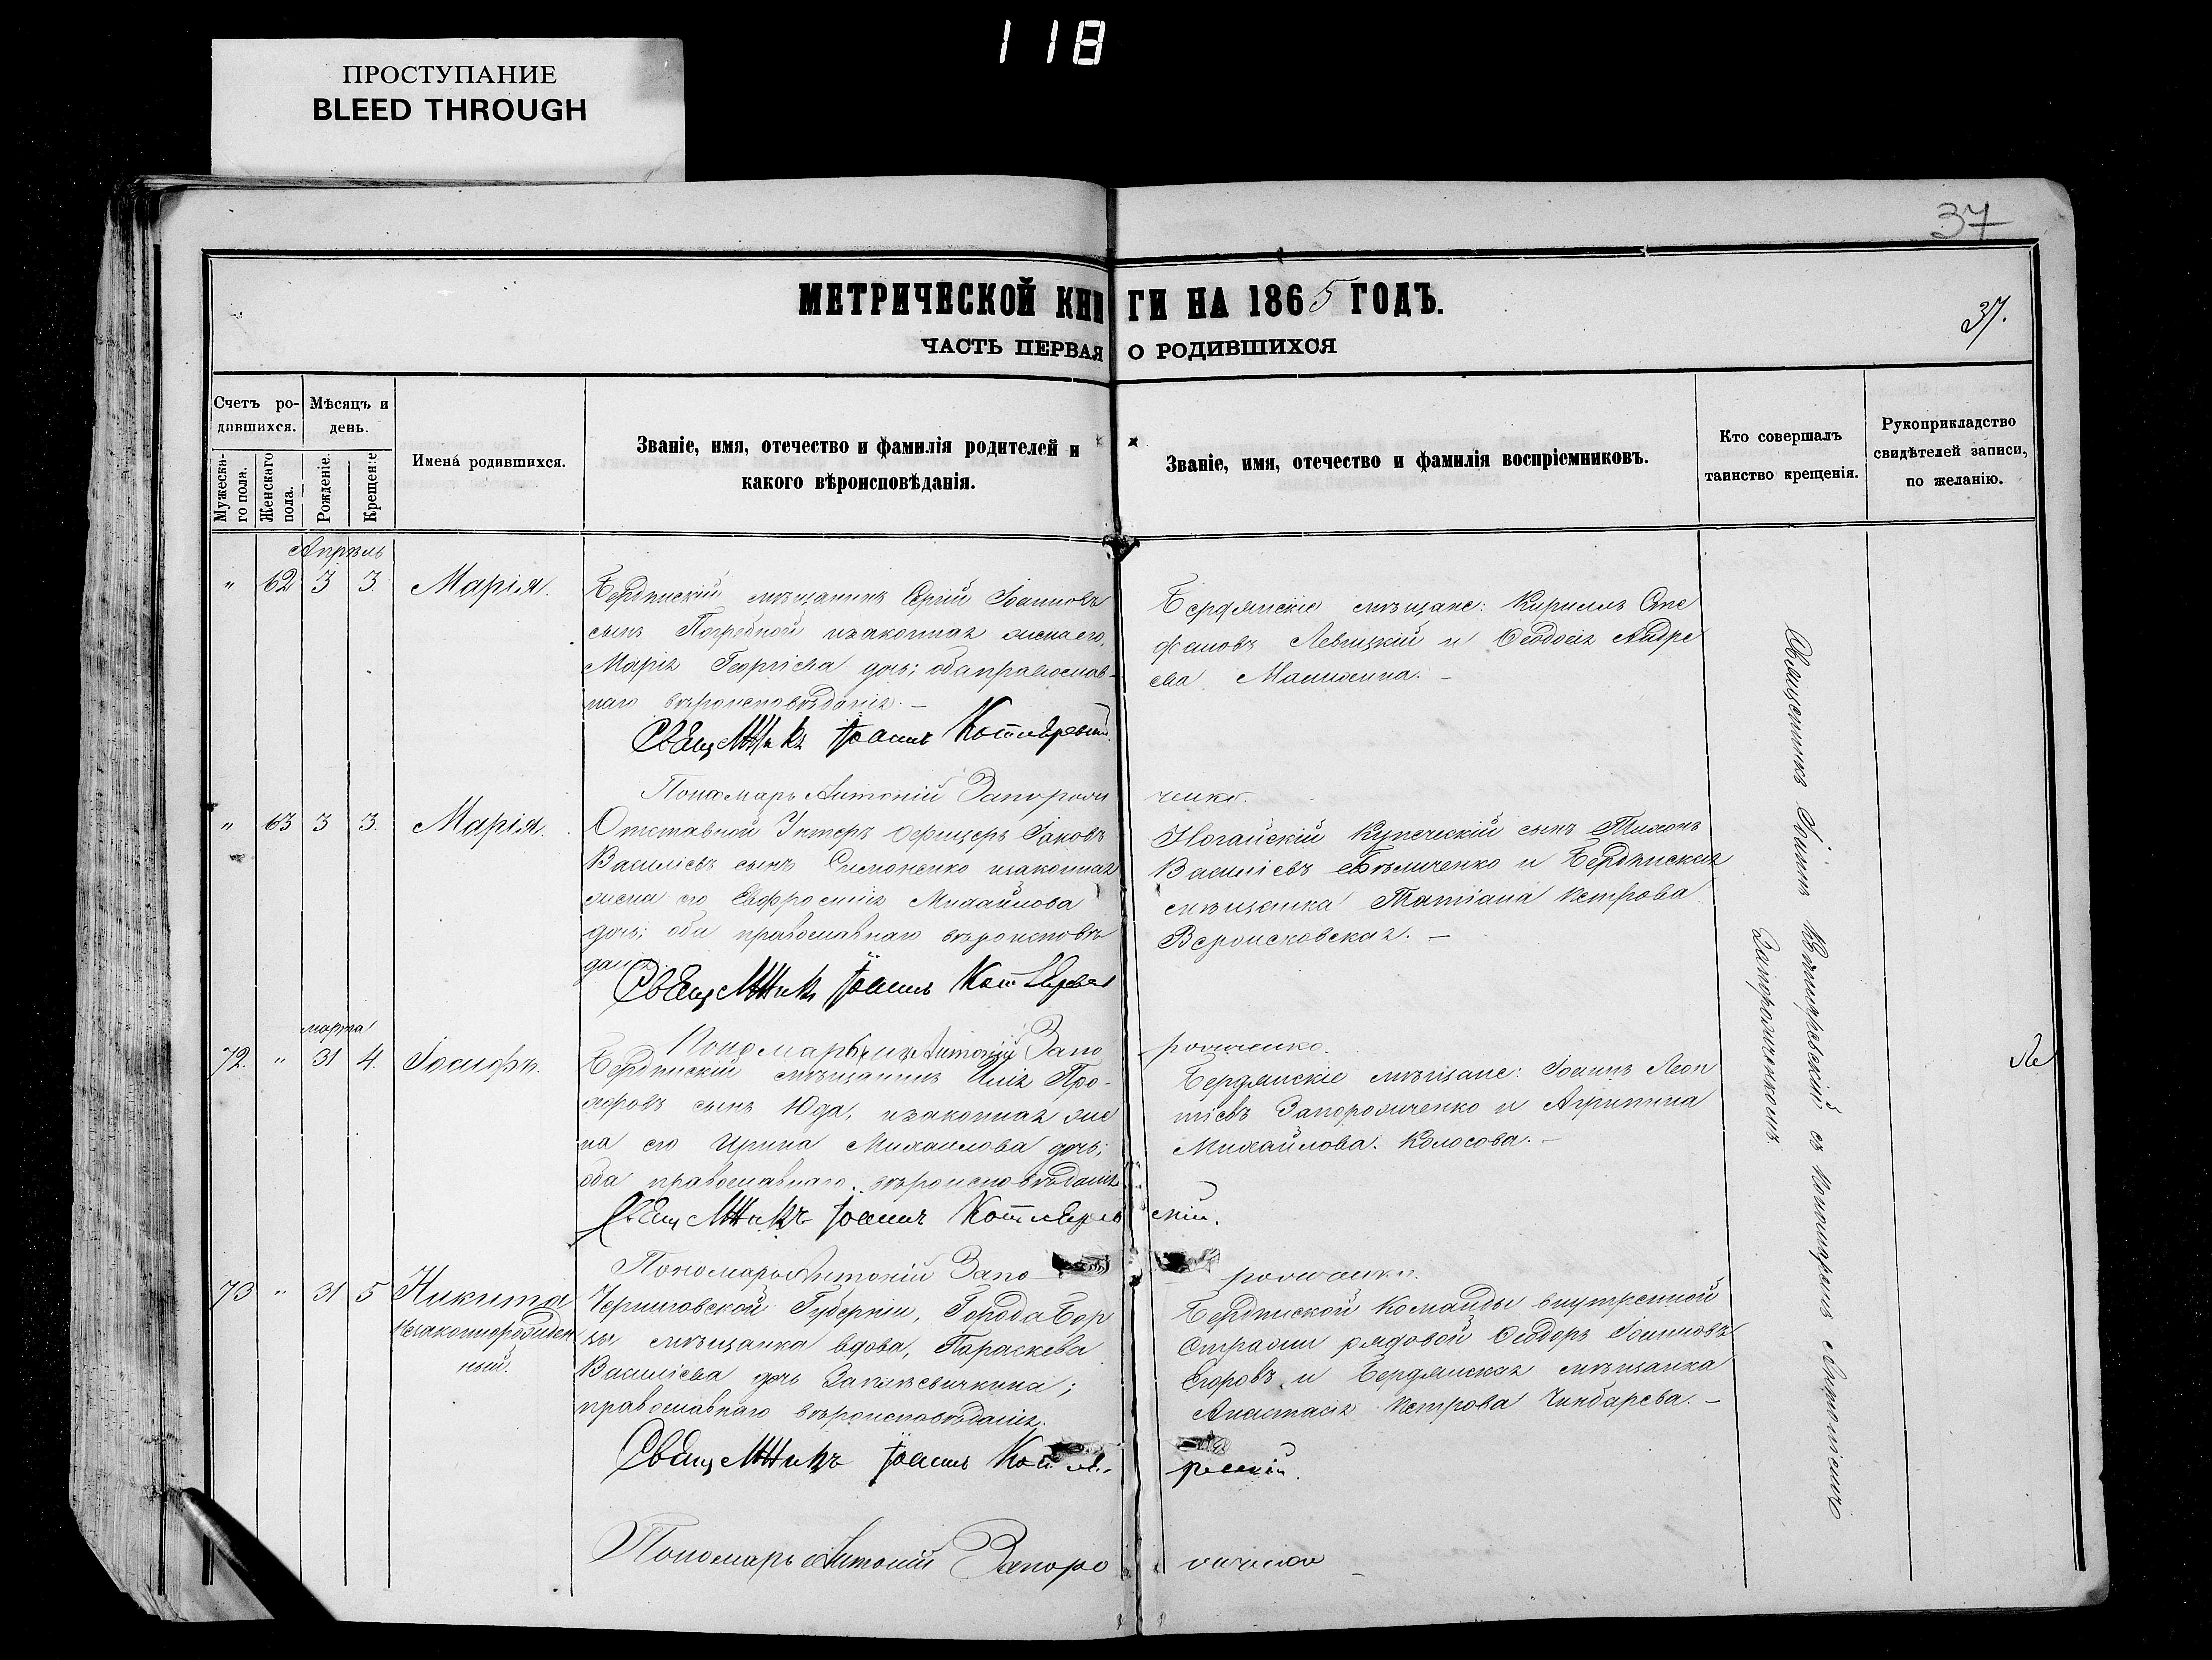 118
ПРОСТУПАНИЕ
BLEED THROUGH
37
МЕТРИЧЕСКОЙ КНИГИ НА 1865 ГОДЪ.
37.
ЧАСТЬ ПЕРВАЯ О РОДИВШИХСЯ
Счетъ ро-
дившихся.
Мужеска-
го пола.
Женскаго
пола.
Мѣсяцъ и
день.
Рожденіе.
Крещеніе
Имена́ родившихся.
Званіе, имя, отечество и фамилія родителей и
какого вѣроисповѣданія.
Званіе, имя, отечество и фамилія воспріемниковъ.
Кто совершалъ
таинство крещенія.
Рукоприкладство
свидѣтелей записи,
по желанію.
Апрѣль
" 62 3 3. Марія.
Бердянскій мѣщанинъ Сергій Іоанновъ
сынъ Погребной изаконная жена его,
Марія Георгіева дочь; оба православ-
наго вѣроисповѣданія. —
Священникъ Іоаннъ
Пономарь Антоній Запорожченко.
Бердянскіе мѣщане: Кириллъ Сте
фановъ Левицкій и Ѳеодосія Андре
ева. —
" 63 3 3. Марія.
Отставной Унтеръ Офицеръ Іаковъ
Василіевъ сынъ Симоненко изаконная
жена его Евфросинія Михайлова
дочь; оба православнаго вѣроисповѣ
данія.
Священникъ Іоаннъ
Пономарь Антоній Запорожченко.
Ногайскій Купеческій сынъ Тихонъ
Василіевъ и Бердянская
мѣщанка Татіана Петрова
—
марта
72. " 31 4. Іосифъ.
Бердянскій мѣщанинъ Илія Про-
хоровъ сынъ Юда, изаконная же
на его Ирина Михаилова дочь;
оба православнаго вѣроисповѣданія
Священникъ Іоаннъ Котляревскій.
Пономарь Антоній Запорожченко.
Бердянскіе мѣщане: Іоаннъ Леон
тіевъ Запорожченко и Агрипина
Михайлова Колосова. —
73 " 31 5 Никита
незаконнорожден
ный.
Черниговской Губерніи, Города Бор
зы мѣщанка вдова, Параскева
Василіева дочь
православнаго вѣроисповѣданія.
Священникъ Іоаннъ Котляревскій.
Пономарь Антоній Запорожченко
Бердянской Команды внутренной
Стражи рядовой Ѳеодоръ Іоанновъ
Егоровъ и Бердянская мѣщанка
Анастасія Петрова Чинбарева. —
Священникъ Іоаннъ Котляревскій съ Пономаремъ Антоніемъ
Запорожченкомъ.